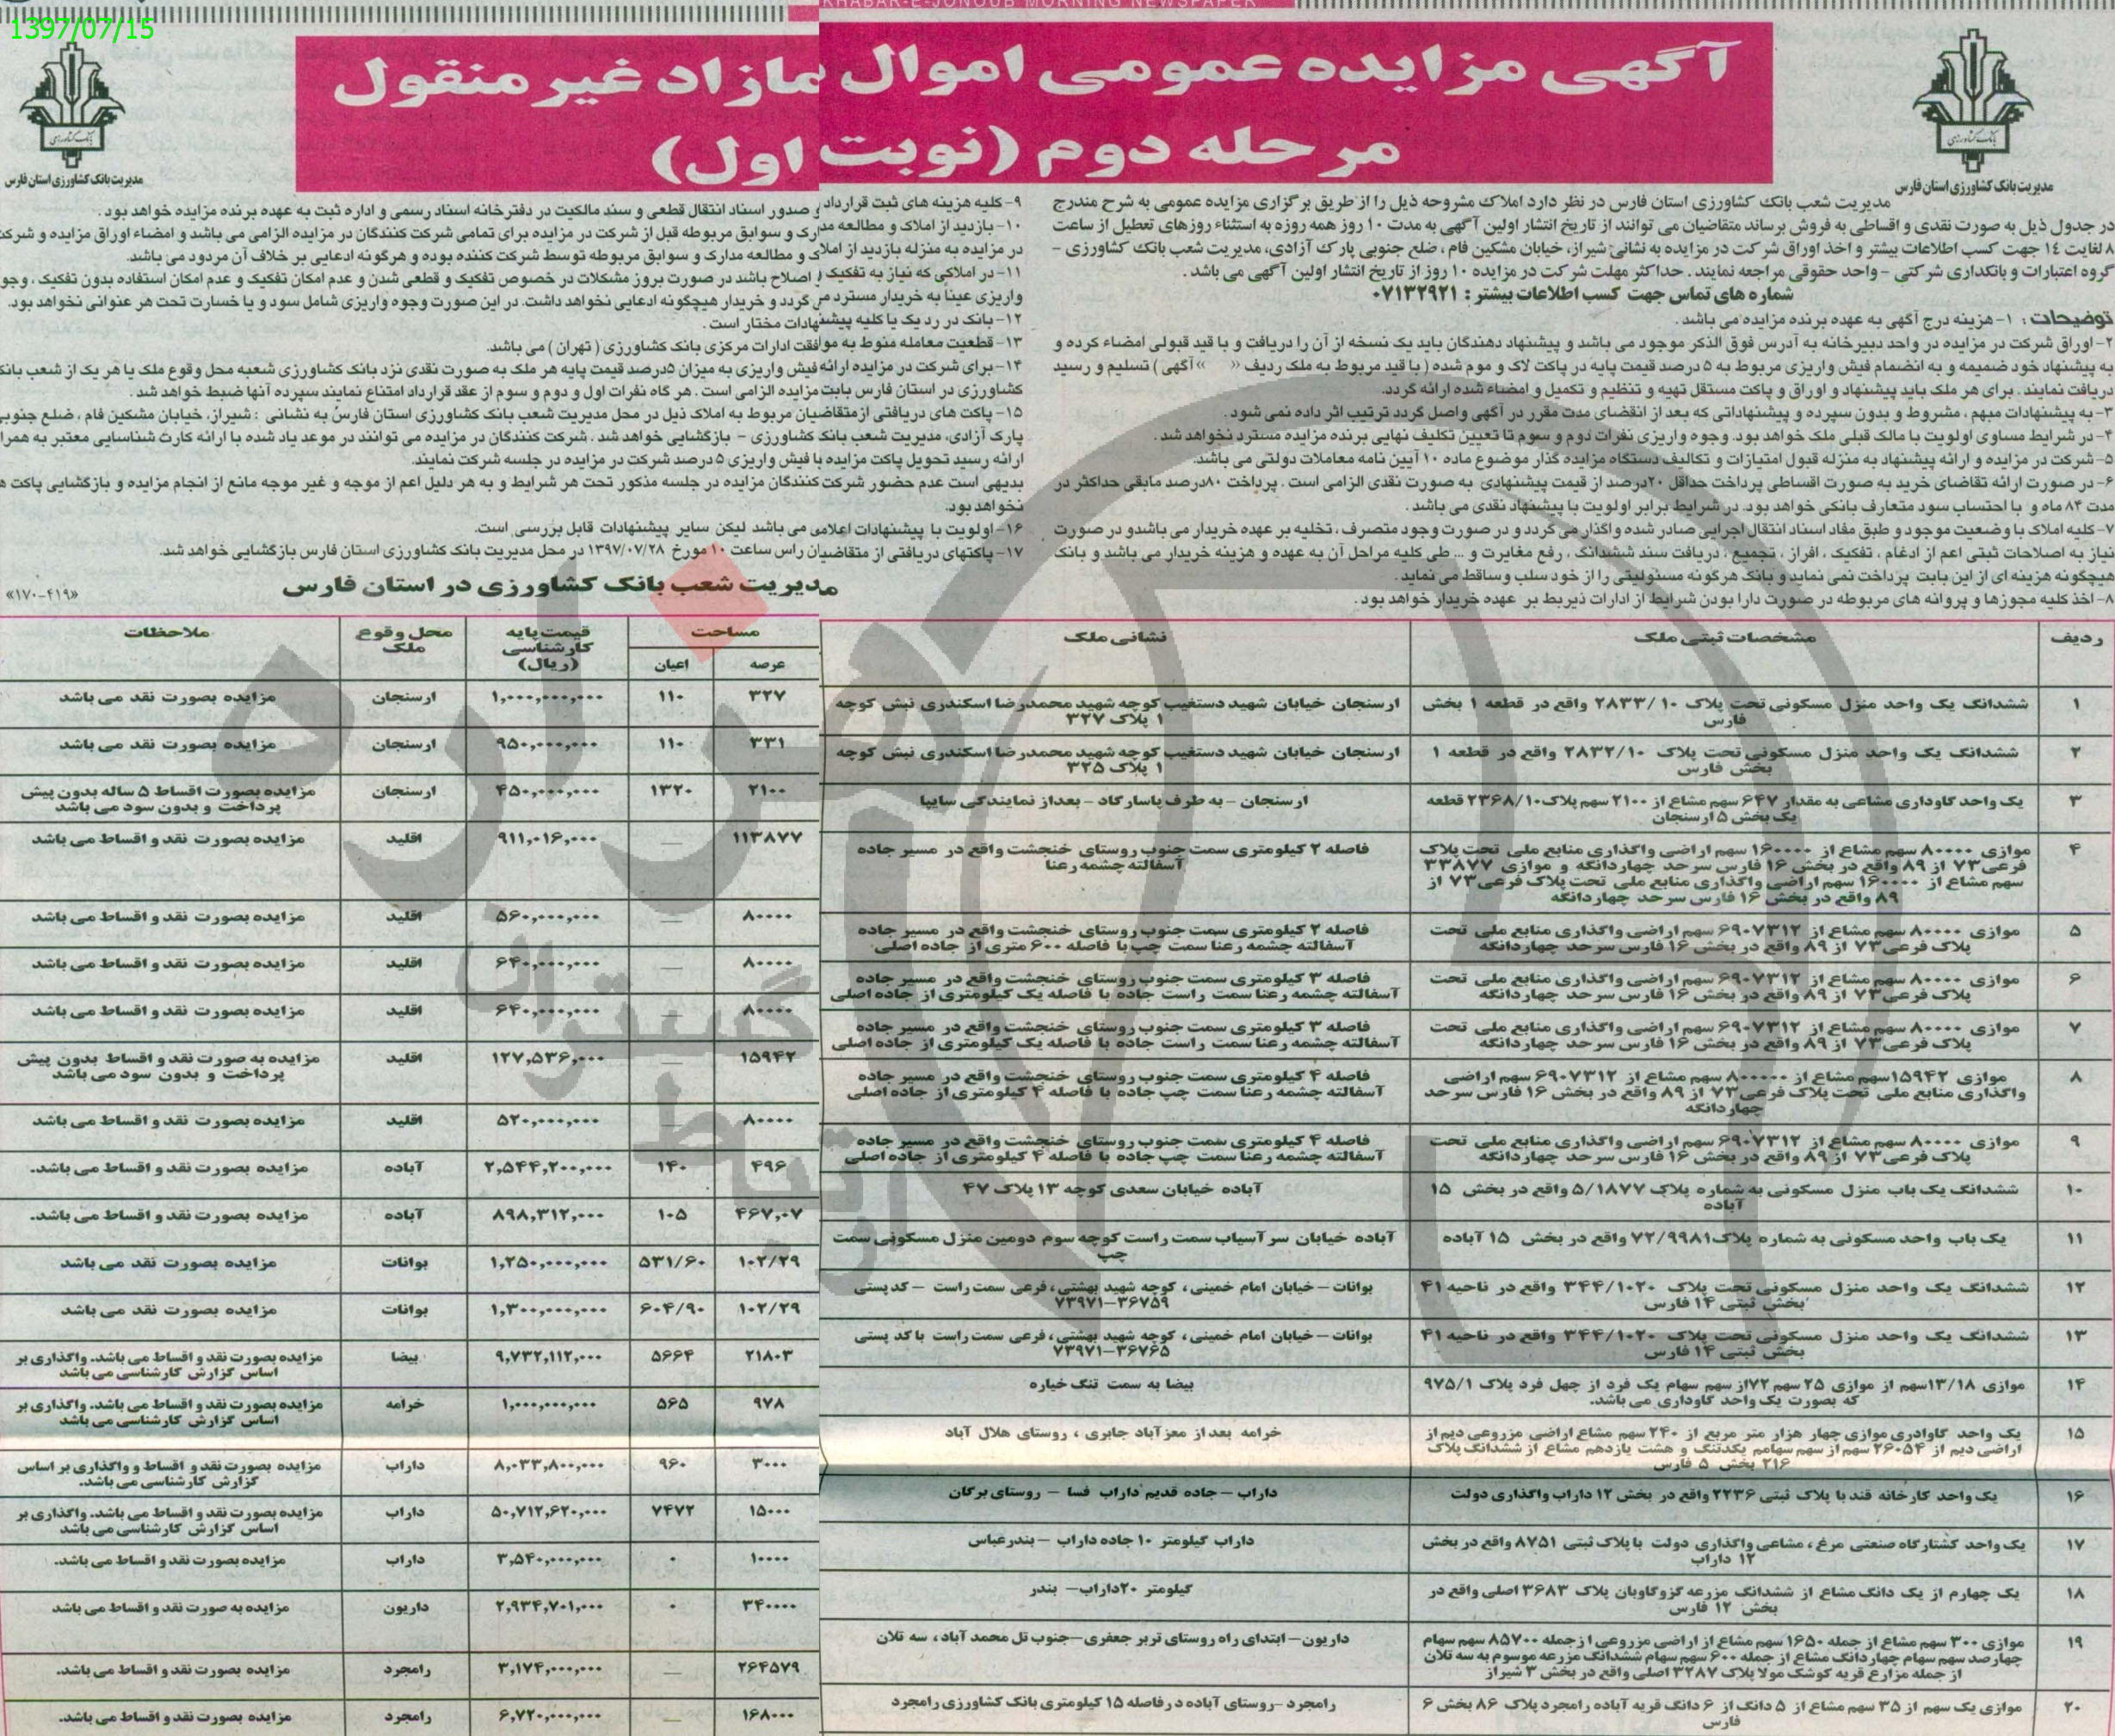 1397/07/15
KHABAR-E-JONOUB MORNING NEWSPAPER
آگهی مزایده عمومی اموال مازاد غیر منقول
مرحله دوم (نوبت اول)
مدیریت بانک کشاورزی استان فارس
مدیریت بانک کشاورزی استان فارس
مدیریت شعب بانک کشاورزی استان فارس در نظر دارد املاک مشروحه ذیل را از طریق برگزاری مزایده عمومی به شرح مندرج
در جدول ذیل به صورت نقدی و اقساطی به فروش برساند متقاضیان می توانند از تاریخ انتشار اولین آگهی به مدت ۱۰ روز همه روزه به استثناء روزهای تعطیل از ساعت
۸ لغایت ۱۴ جهت کسب اطلاعات بیشتر و اخذ اوراق شرکت در مزایده به نشانی: شیراز، خیابان مشکین فام، ضلع جنوبی پارک آزادی، مدیریت شعب بانک کشاورزی –
گروه اعتبارات و بانکداری شرکتی – واحد حقوقی مراجعه نمایند. حداکثر مهلت شرکت در مزایده ۱۰ روز از تاریخ انتشار اولین آگهی می باشد.
شماره های تماس جهت کسب اطلاعات بیشتر: ۰۷۱۳۲۹۲۱
توضیحات: ۱- هزینه درج آگهی به عهده برنده مزایده می باشد.
۲- اوراق شرکت در مزایده در واحد دبیرخانه به آدرس فوق الذکر موجود می باشد و پیشنهاد دهندگان باید یک نسخه از آن را دریافت و با قید قبولی امضاء کرده و
به پیشنهاد خود ضمیمه و به انضمام فیش واریزی مربوط به ۵ درصد قیمت پایه در پاکت لاک و موم شده (با قید مربوط به ملک ردیف «      » آگهی) تسلیم و رسید
دریافت نمایند. برای هر ملک باید پیشنهاد و اوراق و پاکت مستقل تهیه و تنظیم و تکمیل و امضاء شده ارائه گردد.
۳- به پیشنهادات مبهم، مشروط و بدون سپرده و پیشنهاداتی که بعد از انقضای مدت مقرر در آگهی واصل گردد ترتیب اثر داده نمی شود.
۴- در شرایط مساوی اولویت با مالک قبلی ملک خواهد بود. وجوه واریزی نفرات دوم و سوم تا تعیین تکلیف نهایی برنده مزایده مسترد نخواهد شد.
۵- شرکت در مزایده و ارائه پیشنهاد به منزله قبول امتیازات و تکالیف دستگاه مزایده گذار موضوع ماده ۱۰ آیین نامه معاملات دولتی می باشد.
۶- در صورت ارائه تقاضای خرید به صورت اقساطی پرداخت حداقل ۲۰درصد از قیمت پیشنهادی به صورت نقدی الزامی است. پرداخت ۸۰درصد مابقی حداکثر در
مدت ۸۴ ماه و با احتساب سود متعارف بانکی خواهد بود. در شرایط برابر اولویت با پیشنهاد نقدی می باشد.
۷- کلیه املاک با وضعیت موجود و طبق مفاد اسناد انتقال اجرایی صادر شده واگذار می گردد و در صورت وجود متصرف، تخلیه بر عهده خریدار می باشدو در صورت
نیاز به اصلاحات ثبتی اعم از ادغام، تفکیک، افراز، تجمیع، دریافت سند ششدانگ، رفع مغایرت و ... طی کلیه مراحل آن به عهده و هزینه خریدار می باشد و بانک
هیچگونه هزینه ای از این بابت پرداخت نمی نماید و بانک هرگونه مسئولیتی را از خود سلب و ساقط می نماید.
۸- اخذ کلیه مجوزها و پروانه های مربوطه در صورت دارا بودن شرایط از ادارات ذیربط بر عهده خریدار خواهد بود.
۹- کلیه هزینه های ثبت قرارداد و صدور اسناد انتقال قطعی و سند مالکیت در دفترخانه اسناد رسمی و اداره ثبت به عهده برنده مزایده خواهد بود.
۱۰- بازدید از املاک و مطالعه مدارک و سوابق مربوطه قبل از شرکت در مزایده برای تمامی شرکت کنندگان در مزایده الزامی می باشد و امضاء اوراق مزایده و شرکت
در مزایده به منزله بازدید از املاک و مطالعه مدارک و سوابق مربوطه توسط شرکت کننده بوده و هرگونه ادعایی بر خلاف آن مردود می باشد.
۱۱- در املاکی که نیاز به تفکیک و اصلاح باشد در صورت بروز مشکلات در خصوص تفکیک و قطعی شدن و عدم امکان تفکیک و عدم امکان استفاده بدون تفکیک، وجوه
واریزی عیناً به خریدار مسترد می گردد و خریدار هیچگونه ادعایی نخواهد داشت. در این صورت وجوه واریزی شامل سود و یا خسارت تحت هر عنوانی نخواهد بود.
۱۲- بانک در رد یک یا کلیه پیشنهادات مختار است.
۱۳- قطعیت معامله منوط به موافقت ادارات مرکزی بانک کشاورزی (تهران) می باشد.
۱۴- برای شرکت در مزایده ارائه فیش واریزی به میزان ۵درصد قیمت پایه هر ملک به صورت نقدی نزد بانک کشاورزی شعبه محل وقوع ملک یا هر یک از شعب بانک
کشاورزی در استان فارس بابت مزایده الزامی است. هر گاه نفرات اول و دوم و سوم از عقد قرارداد امتناع نمایند سپرده آنها ضبط خواهد شد.
۱۵- پاکت های دریافتی از متقاضیان مربوط به املاک ذیل در محل مدیریت شعب بانک کشاورزی استان فارس به نشانی: شیراز، خیابان مشکین فام، ضلع جنوبی
پارک آزادی، مدیریت شعب بانک کشاورزی – بازگشایی خواهد شد. شرکت کنندگان در مزایده می توانند در موعد یاد شده با ارائه کارت شناسایی معتبر به همراه
ارائه رسید تحویل پاکت مزایده با فیش واریزی ۵ درصد شرکت در مزایده در جلسه شرکت نمایند.
بدیهی است عدم حضور شرکت کنندگان مزایده در جلسه مذکور تحت هر شرایط و به هر دلیل اعم از موجه و غیر موجه مانع از انجام مزایده و بازگشایی پاکت ها
نخواهد بود.
۱۶- اولویت با پیشنهادات اعلامی می باشد لیکن سایر پیشنهادات قابل بررسی است.
۱۷- پاکتهای دریافتی از متقاضیان راس ساعت ۱۰ مورخ ۱۳۹۷/۰۷/۲۸ در محل مدیریت بانک کشاورزی استان فارس بازگشایی خواهد شد.
مدیریت شعب بانک کشاورزی در استان فارس
«۱۷۰-۴۱۹»
ردیف مشخصات ثبتی ملک نشانی ملک مساحت قیمت پایه کارشناسی (ریال) محل وقوع ملک ملاحظات
عرصه اعیان
۱ ششدانگ یک واحد منزل مسکونی تحت پلاک ۲۸۳۳/۱۰ واقع در قطعه ۱ بخش فارس ارسنجان خیابان شهید دستغیب کوچه شهید محمدرضا اسکندری نبش کوچه ۱ پلاک ۳۲۷ ۳۲۷ ۱۱۰ ۱,۰۰۰,۰۰۰,۰۰۰ ارسنجان مزایده بصورت نقد می باشد
۲ ششدانگ یک واحد منزل مسکونی تحت پلاک ۲۸۳۲/۱۰ واقع در قطعه ۱ بخش فارس ارسنجان خیابان شهید دستغیب کوچه شهید محمدرضا اسکندری نبش کوچه ۱ پلاک ۳۲۵ ۳۳۱ ۱۱۰ ۹۵۰,۰۰۰,۰۰۰ ارسنجان مزایده بصورت نقد می باشد
۳ یک واحد گاوداری مشاعی به مقدار ۶۴۷ سهم مشاع از ۲۱۰۰ سهم پلاک ۲۳۶۸/۱۰ قطعه یک بخش ۵ ارسنجان ارسنجان – به طرف پاسارگاد – بعداز نمایندگی سایپا ۲۱۰۰ ۱۳۲۰ ۴۵۰,۰۰۰,۰۰۰ ارسنجان مزایده بصورت اقساط ۵ ساله بدون پیش پرداخت و بدون سود می باشد
۴ موازی ۸۰۰۰۰ سهم مشاع از ۱۶۰۰۰۰ سهم اراضی واگذاری منابع ملی تحت پلاک فرعی ۷۳ از ۸۹ واقع در بخش ۱۶ فارس سرحد چهاردانگه و موازی ۳۳۸۷۷ سهم مشاع از ۱۶۰۰۰۰ سهم اراضی واگذاری منابع ملی تحت پلاک فرعی ۷۳ از ۸۹ واقع در بخش ۱۶ فارس سرحد چهاردانگه فاصله ۲ کیلومتری سمت جنوب روستای خنجشت واقع در مسیر جاده آسفالته چشمه رعنا ۱۱۳۸۷۷ — ۹۱۱,۰۱۶,۰۰۰ اقلید مزایده بصورت نقد و اقساط می باشد
۵ موازی ۸۰۰۰۰ سهم مشاع از ۶۹۰۷۳۱۲ سهم اراضی واگذاری منابع ملی تحت پلاک فرعی ۷۳ از ۸۹ واقع در بخش ۱۶ فارس سرحد چهاردانگه فاصله ۲ کیلومتری سمت جنوب روستای خنجشت واقع در مسیر جاده آسفالته چشمه رعنا سمت چپ با فاصله ۶۰۰ متری از جاده اصلی ۸۰۰۰۰ — ۵۶۰,۰۰۰,۰۰۰ اقلید مزایده بصورت نقد و اقساط می باشد
۶ موازی ۸۰۰۰۰ سهم مشاع از ۶۹۰۷۳۱۲ سهم اراضی واگذاری منابع ملی تحت پلاک فرعی ۷۳ از ۸۹ واقع در بخش ۱۶ فارس سرحد چهاردانگه فاصله ۳ کیلومتری سمت جنوب روستای خنجشت واقع در مسیر جاده آسفالته چشمه رعنا سمت راست جاده با فاصله یک کیلومتری از جاده اصلی ۸۰۰۰۰ — ۶۴۰,۰۰۰,۰۰۰ اقلید مزایده بصورت نقد و اقساط می باشد
۷ موازی ۸۰۰۰۰ سهم مشاع از ۶۹۰۷۳۱۲ سهم اراضی واگذاری منابع ملی تحت پلاک فرعی ۷۳ از ۸۹ واقع در بخش ۱۶ فارس سرحد چهاردانگه فاصله ۳ کیلومتری سمت جنوب روستای خنجشت واقع در مسیر جاده آسفالته چشمه رعنا سمت راست جاده با فاصله یک کیلومتری از جاده اصلی ۸۰۰۰۰ ۶۴۰,۰۰۰,۰۰۰ اقلید مزایده بصورت نقد و اقساط می باشد
۸ موازی ۱۵۹۴۲سهم مشاع از ۸۰۰۰۰۰ سهم مشاع از ۶۹۰۷۳۱۲ سهم اراضی واگذاری منابع ملی تحت پلاک فرعی ۷۳ از ۸۹ واقع در بخش ۱۶ فارس سرحد چهاردانگه فاصله ۴ کیلومتری سمت جنوب روستای خنجشت واقع در مسیر جاده آسفالته چشمه رعنا سمت چپ جاده با فاصله ۴ کیلومتری از جاده اصلی ۱۵۹۴۲ — ۱۲۷,۵۳۶,۰۰۰ اقلید مزایده به صورت نقد و اقساط بدون پیش پرداخت و بدون سود می باشد
۹ موازی ۸۰۰۰۰ سهم مشاع از ۶۹۰۷۳۱۲ سهم اراضی واگذاری منابع ملی تحت پلاک فرعی ۷۳ از ۸۹ واقع در بخش ۱۶ فارس سرحد چهاردانگه فاصله ۴ کیلومتری سمت جنوب روستای خنجشت واقع در مسیر جاده آسفالته چشمه رعنا سمت چپ جاده با فاصله ۴ کیلومتری از جاده اصلی ۸۰۰۰۰ ۵۲۰,۰۰۰,۰۰۰ اقلید مزایده بصورت نقد و اقساط می باشد
۱۰ ششدانگ یک باب منزل مسکونی به شماره پلاک ۵/۱۸۷۷ واقع در بخش ۱۵ آباده آباده خیابان سعدی کوچه ۱۳ پلاک ۴۷ ۴۹۶ ۱۴۰ ۲,۵۴۴,۲۰۰,۰۰۰ آباده مزایده بصورت نقد و اقساط می باشد.
۱۱ یک باب واحد مسکونی به شماره پلاک ۷۲/۹۹۸۱ واقع در بخش ۱۵ آباده آباده خیابان سرآسیاب سمت راست کوچه سوم دومین منزل مسکونی سمت چپ ۴۶۷,۰۷ ۱۰۵ ۸۹۸,۳۱۲,۰۰۰ آباده مزایده بصورت نقد و اقساط می باشد.
۱۲ ششدانگ یک واحد منزل مسکونی تحت پلاک ۳۴۴/۱۰۲۰ واقع در ناحیه ۴۱ بخش ثبتی ۱۴ فارس بوانات – خیابان امام خمینی، کوچه شهید بهشتی، فرعی سمت راست – کد پستی ۷۳۹۷۱-۳۶۷۵۹ ۱۰۲/۲۹ ۵۳۱/۶۰ ۱,۲۵۰,۰۰۰,۰۰۰ بوانات مزایده بصورت نقد می باشد
۱۳ ششدانگ یک واحد منزل مسکونی تحت پلاک ۳۴۴/۱۰۲۰ واقع در ناحیه ۴۱ بخش ثبتی ۱۴ فارس بوانات – خیابان امام خمینی، کوچه شهید بهشتی، فرعی سمت راست با کد پستی ۷۳۹۷۱-۳۶۷۶۵ ۱۰۲/۲۹ ۶۰۴/۹۰ ۱,۳۰۰,۰۰۰,۰۰۰ بوانات مزایده بصورت نقد می باشد
۱۴ موازی ۱۳/۱۸سهم از موازی ۲۵ سهم ۷۲از سهم سهام یک فرد از چهل فرد پلاک ۹۷۵/۱ که بصورت یک واحد گاوداری می باشد. بیضا به سمت تنگ خیاره ۲۱۸۰۳ ۵۶۶۴ ۹,۷۳۲,۱۱۲,۰۰۰ بیضا مزایده بصورت نقد و اقساط می باشد. واگذاری بر اساس گزارش کارشناسی می باشد
۱۵ یک واحد گاوداری موازی چهار هزار متر مربع از ۲۴۰ سهم مشاع اراضی مزروعی دیم از اراضی دیم از ۲۶۰۵۴ سهم از سهم سهامم یکدتنگ و هشت یازدهم مشاع از ششدانگ پلاک ۲۱۶ بخش ۵ فارس خرامه بعد از معزآباد جابری، روستای هلال آباد ۹۷۸ ۵۶۵ ۱,۰۰۰,۰۰۰,۰۰۰ خرامه مزایده بصورت نقد و اقساط می باشد. واگذاری بر اساس گزارش کارشناسی می باشد
۱۶ یک واحد کارخانه قند با پلاک ثبتی ۲۲۳۶ واقع در بخش ۱۲ داراب واگذاری دولت داراب – جاده قدیم داراب فسا – روستای برکان ۳۰۰۰ ۹۶۰ ۸,۰۳۳,۸۰۰,۰۰۰ داراب مزایده بصورت نقد و اقساط و واگذاری بر اساس گزارش کارشناسی می باشد.
۱۷ یک واحد کشتارگاه صنعتی مرغ، مشاعی واگذاری دولت با پلاک ثبتی ۸۷۵۱ واقع در بخش ۱۲ داراب داراب کیلومتر ۱۰ جاده داراب – بندرعباس ۱۵۰۰۰ ۷۴۷۲ ۵۰,۷۱۲,۶۲۰,۰۰۰ داراب مزایده بصورت نقد و اقساط می باشد. واگذاری بر اساس گزارش کارشناسی می باشد
۱۸ یک چهارم از یک دانگ مشاع از ششدانگ مزرعه گزوگاوبان پلاک ۳۶۸۳ اصلی واقع در بخش ۱۲ فارس کیلومتر ۲۰داراب– بندر ۱۰۰۰۰ ۰ ۳,۵۴۰,۰۰۰,۰۰۰ داراب مزایده بصورت نقد و اقساط می باشد.
۱۹ موازی ۳۰۰ سهم مشاع از جمله ۱۶۵۰ سهم مشاع از اراضی مزروعی ازجمله ۸۵۷۰۰ سهم سهام چهارصد سهم سهام چهاردانگ مشاع از جمله ۶۰۰ سهم سهام ششدانگ مزرعه موسوم به سه تلان از جمله مزارع قریه کوشک مولا پلاک ۳۲۸۷ اصلی واقع در بخش ۳ شیراز داریون– ابتدای راه روستای تربر جعفری–جنوب تل محمد آباد، سه تلان ۳۴۰۰۰۰ ۰ ۲,۹۳۴,۷۰۱,۰۰۰ داریون مزایده به صورت نقد و اقساط می باشد
۲۰ موازی یک سهم از ۳۵ سهم مشاع از ۵ دانگ از ۶ دانگ قریه آباده رامجرد پلاک ۸۶ بخش ۶ فارس رامجرد –روستای آباده درفاصله ۱۵ کیلومتری بانک کشاورزی رامجرد ۲۶۴۵۷۹ — ۳,۱۷۴,۰۰۰,۰۰۰ رامجرد مزایده بصورت نقد و اقساط می باشد.
۱۶۸۰۰۰ — ۶,۷۲۰,۰۰۰,۰۰۰ رامجرد مزایده بصورت نقد و اقساط می باشد.
هزاره
گستران
ارتباط